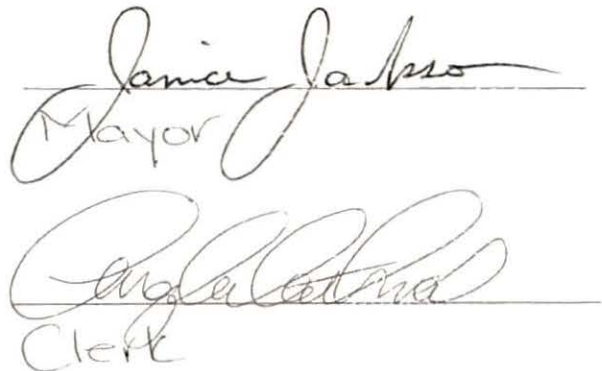 Janice Jackson
Mayor
Angela
Clerk